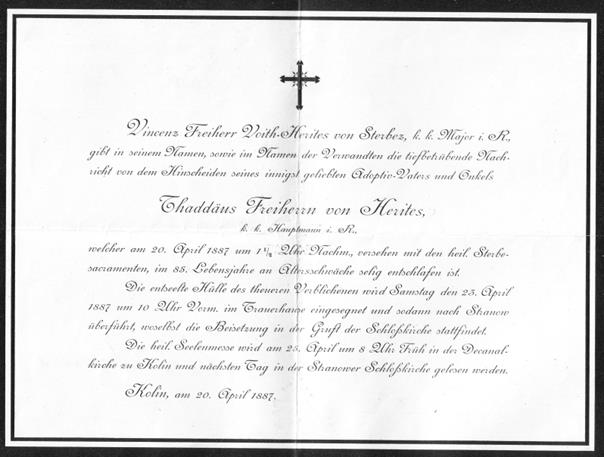 Vincenz Freiherr Voith-Herites von Sterbez, k. k. Major i. R.,
gibt in seinem Namen, sowie im Namen der Verwandten die tiefbetrübende Nach-
richt von dem Hinscheiden seines innigst geliebten Adoptiv-Vaters und Onkels
Thaddäus Freiherrn von Herites,
k. k. Hauptmann i. R.,
welcher am 20. April 1887 um Uhr Nachm., versehen mit den heil. Sterbe-
sacramenten, im 85. Lebensjahre an Altersschwäche selig entschlafen ist.
Die entseelte Hülle des theueren Verblichenen wird Samstag den 23. April
1887 um 10 Uhr Vorm. im Trauerhause eingesegnet und sodann nach Stranow
überführt, woselbst die Beisetzung in der Gruft der Schloßkirche stattfindet.
Die heil. Seelenmesse wird am 25. April um 8 Uhr Früh in der Decanal-
kirche zu Kolin und nächsten Tag in der Stranower Schloßkirche gelesen werden.
Kolin, am 20. April 1887.